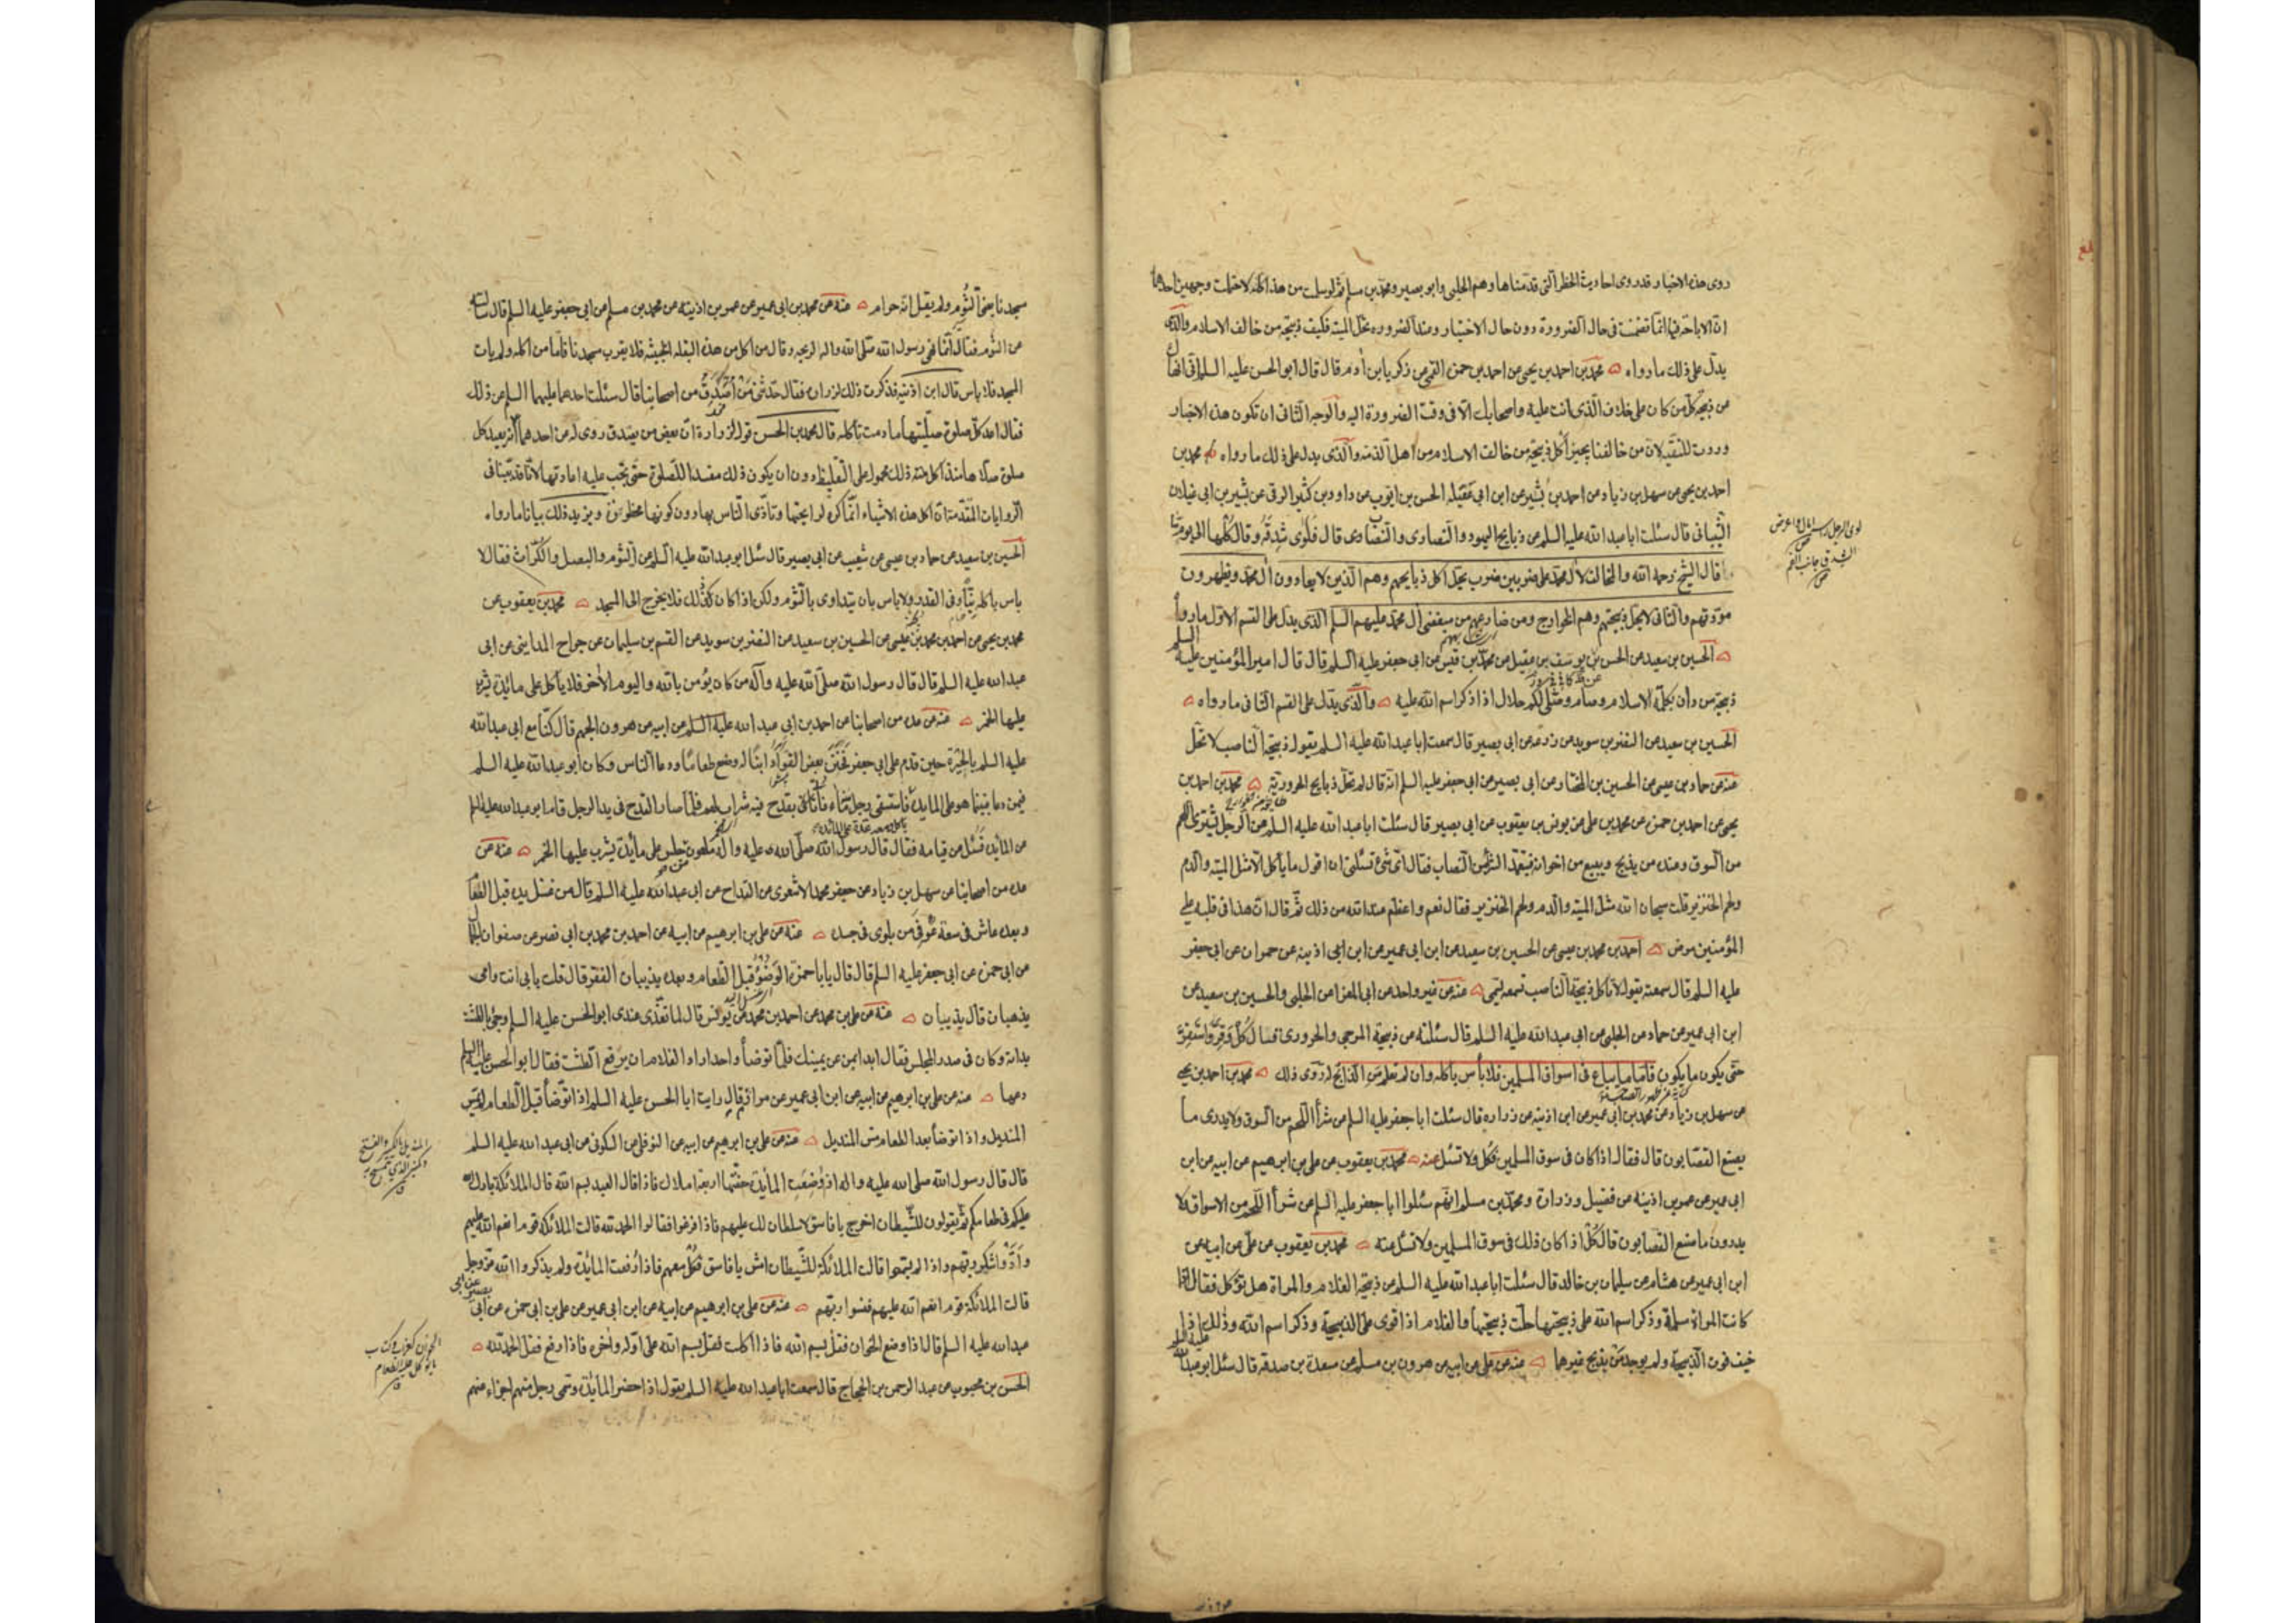 روى هذه الاخبار قد روى احاديث الحظر التى قدمناها وهم الحلبى وابو بصير ومحمد بن مسلم ثم لو سلمت من هذا كله لاحتملت وجهين احدهما
ان الاباحة فيها انما تضمنت فى حال الضرورة دون حال الاختيار وعند الضرورة تحل الميتة فكيف ذبيحة من خالف الاسلام والذى
يدل على ذلك ما رواه محمد بن احمد بن يحيى عن احمد بن حمزة القمى عن زكريا بن آدم قال قال ابو الحسن عليه السلم انى انهاك
عن ذبيحة كل من كان على خلاف الذى انت عليه واصحابك الا فى وقت الضرورة اليه والوجه الثانى ان تكون هذه الاخبار
وردت للتقية لان من خالفنا يجيز اكل ذبيحة من خالف الاسلام من اهل الذمة والذى يدل على ذلك ما رواه محمد بن
احمد بن يحيى عن سهل بن زياد عن احمد بن بشير عن ابن ابى عقيلة الحسن بن ايوب عن داود بن كثير الرقى عن بشير بن ابى غيلان
الشيبانى قال سئلت ابا عبد الله عليه السلم عن ذبايح اليهود والنصارى والنصاب قال فلوى شدقه وقال كلها الى يوم ما
قال الشيخ رحمه الله والمخالف لآل محمد على ضربين ضرب يحل اكل ذبايحهم وهم الذين لا يعادون آل محمد ويظهرون
مودتهم والثانى لا يحل ذبيحتهم وهم الخوارج ومن ضارعهم من مبغضى آل محمد عليهم السلم الذى يدل على القسم الاول ما رواه
الحسين بن سعيد عن الحسن بن يوسف بن عقيل عن محمد بن قيس عن ابى جعفر عليه السلم قال قال امير المؤمنين عليه السلم
ذبيحة من دان بكلمة الاسلام وصام وصلى لكم حلال اذا ذكر اسم الله عليه والذى يدل على القسم الثانى ما رواه
الحسين بن سعيد عن النضر بن سويد عن زرعة عن ابى بصير قال سمعت ابا عبد الله عليه السلم يقول ذبيحة الناصب لا تحل
عنه عن حماد بن عيسى عن الحسين بن المختار عن ابى بصير عن ابى جعفر عليه السلم انه قال لم تحل ذبايح الحرورية محمد بن احمد بن
يحيى عن احمد بن حمزة عن محمد بن على عن يونس بن يعقوب عن ابى بصير قال سئلت ابا عبد الله عليه السلم عن الرجل يشترى اللحم
من السوق وعنده من يذبح ويبيع من اخوانه فيتعمد الشرى من النصاب فقال اى شئ تسئلنى ان اقول ما ياكل الا مثل الميتة والدم
ولحم الخنزير قلت سبحان الله مثل الميتة والدم ولحم الخنزير فقال نعم واعظم عند الله من ذلك ثم قال ان هذا فى قلبه على
المؤمنين مرض احمد بن محمد بن عيسى عن الحسين بن سعيد عن ابن ابى عمير عن ابن ابى اذينه عن حمران عن ابى جعفر
عليه السلم قال سمعته يقول لا تاكل ذبيحة الناصب تسمعه يسمى عنه عن غير واحد عن ابى المعزا عن الحلبى والحسين بن سعيد عن
ابن ابى عمير عن حماد عن الحلبى عن ابى عبد الله عليه السلم قال سئلته عن ذبيحة المرجى والحرورى فقال كل وقر واستقر
حتى يكون ما يكون فاما ما يباع فى اسواق المسلمين فلا بأس باكله وان لم تعلم من الذابح له روى ذلك محمد بن احمد بن يحيى
عن سهل بن زياد عن محمد بن ابى عمير عن ابن اذينه عن زراره قال سئلت ابا جعفر عليه السلم عن شرأ اللحم من السوق ولا يدرى ما
يصنع القصابون قال فقال اذا كان فى سوق المسلمين فكل ولا تسئل عنه محمد بن يعقوب عن على بن ابرهيم عن ابيه عن ابن
ابى عمير عن عمر بن اذينه عن فضيل وزرارة ومحمد بن مسلم انهم سئلوا ابا جعفر عليه السلم عن شرأ اللحم من الاسواق ولا
يدرون ما صنع القصابون قال كل اذا كان ذلك فى سوق المسلمين ولا تسئل عنه محمد بن يعقوب عن على عن ابيه عن
ابن ابى عمير عن هشام عن سليمان بن خالد قال سئلت ابا عبد الله عليه السلم عن ذبيحة الغلام والمراة هل تؤكل فقال اذا
كانت المراة مسلمة وذكر اسم الله على ذبيحتها حلت ذبيحتها والغلام اذا قوى على الذبيحة وذكر اسم الله وذلك اذا
خيف فوت الذبيحة ولم يوجد من يذبح غيرها عنه عن على عن ابيه عن هرون بن مسلم عن مسعدة بن صدقة قال سئل ابو عبد الله عليه السلم
لوى الرجل راسه امال واعرض ص
الشدق جانب الفم ص
مسجدنا يعنى الثوم ولم يقل انه حرام عنه عن محمد بن ابى عمير عن عمر بن اذينه عن محمد بن مسلم عن ابى جعفر عليه السلم قال سئلته
عن الثوم فقال انما نهى رسول الله صلى الله واله لريحه وقال من اكل من هذه البقلة الخبيثه فلا يقرب مسجدنا فاما من اكله ولم يات
المسجد فلا باس قال ابن اذينه فذكرت ذلك لزرارة فقال حدثنى من اصدق من اصحابنا قال سئلت احدهما عليهما السلم عن ذلك
فقال اعد كل صلوة صليتها ما دمت تاكله قال محمد بن الحسن قول زرارة ان بعض من يصدق روى له عن احدهما انه يعيد كل
صلوة صلاها منذ اكل منه ذلك محمول على التغليظ دون ان يكون ذلك مفسدا للصلوة حتى يجب عليه اعادتها لانا قد بينا فى
الروايات المتقدمة ان اكل هذه الاشياء انما كره لرايحتها وتأذى الناس بها دون كونها محظورة ويزيد ذلك بيانا ما رواه
الحسين بن سعيد عن حماد بن عيسى عن شعيب عن ابى بصير قال سئل ابو عبد الله عليه السلم عن الثوم والبصل والكراث فقال لا
باس باكله نيا وفى القدر ولا باس بان يتداوى بالثوم ولكن اذا كان كذلك فلا يخرج الى المسجد محمد بن يعقوب عن
محمد بن يحيى عن احمد بن محمد بن عيسى عن الحسين بن سعيد عن النضر بن سويد عن القسم بن سليمان عن جراح المداينى عن ابى
عبد الله عليه السلم قال قال رسول الله صلى الله عليه وآله من كان يؤمن بالله واليوم الآخر فلا ياكل على مائدة يشرب
عليها الخمر عنه عن عدة من اصحابنا عن احمد بن ابى عبد الله عليه السلم عن ابيه عن هرون الجهم قال كنا مع ابى عبد الله
عليه السلم بالحيرة حين قدم على ابى جعفر فختن بعض القواد ابنا له وصنع طعاما ودعا الناس وكان ابو عبد الله عليه السلم
فيمن دعا فبينما هو على المايدة فاستسقى رجل ماء فأتى بقدح فيه شراب لهم فلما صار القدح فى يد الرجل قام ابو عبد الله عليه السلم
عن المائدة فسئل عن قيامه فقال قال رسول الله صلى الله عليه واله ملعون من جلس على مأيدة يشرب عليها الخمر عنه عن
عدة من اصحابنا عن سهل بن زياد عن جعفر محمد الاشعرى عن القداح عن ابى عبد الله عليه السلم قال من غسل يده قبل الطعام
وبعده عاش فى سعة وعوفى من بلوى فى جسده عنه عن على بن ابرهيم عن ابيه عن احمد بن محمد بن ابى نصر عن صفوان الجمال
عن ابى حمزه عن ابى جعفر عليه السلم قال قال يا با حمزة الوضوء قبل الطعام وبعده يذيبان الفقر قال قلت بابى انت وامى
يذهبان قال يذيبان عنه عن على بن محمد عن احمد بن محمد عن يونس قال لما تغذى عندى ابو الحسن عليه السلم وجئ بالطشت
بدا به وكان فى صدر المجلس فقال ابدا بمن عن يمينك فلما توضأ واحد اراد الغلام ان يرفع الطشت فقال ابو الحسن عليه السلم
دعها عنه عن على بن ابرهيم عن ابيه عن ابن ابى عمير عن مرازم قال رايت ابا الحسن عليه السلم اذا توضأ قبل الطعام لم يمس
المنديل واذا توضأ بعد الطعام مس المنديل عنه عن على بن ابرهيم عن ابيه عن النوفلى عن السكونى عن ابى عبد الله عليه السلم
قال قال رسول الله صلى الله عليه واله اذا وضعت المأيدة حفتها اربعة املاك فاذا قال العبد بسم الله قال الملائكة بارك الله
عليكم فى طعامكم ثم يقولون للشيطان اخرج يا فاسق لا سلطان لك عليهم فاذا فرغوا فقالوا الحمد لله قالت الملائكة قوم انعم الله عليهم
وأدوا شكر ربهم واذا لم يسموا قالت الملائكة للشيطان ادن يا فاسق فكل معهم فاذا رفعت المائدة ولم يذكروا الله عز وجل
قالت الملائكة قوم انعم الله عليهم فنسوا ربهم عنه عن على بن ابرهيم عن ابيه عن ابن ابى عمير عن على بن ابى حمزه عن ابى بصير عن ابى
عبد الله عليه السلم قال اذا وضع الخوان فقل بسم الله فاذا اكلت فقل بسم الله على اوله وآخره فاذا رفع فقل الحمد لله
الحسن بن محبوب عن عبد الرحمن بن الحجاج قال سمعت ابا عبد الله عليه السلم يقول اذا حضر المأيدة وسمى رجل منهم اجزاء عنهم
المنديل بالكسر والفتح
وكمنبر الذى يتمسح به ق
الخوان كغراب وكتاب
ما يؤكل عليه الطعام ق